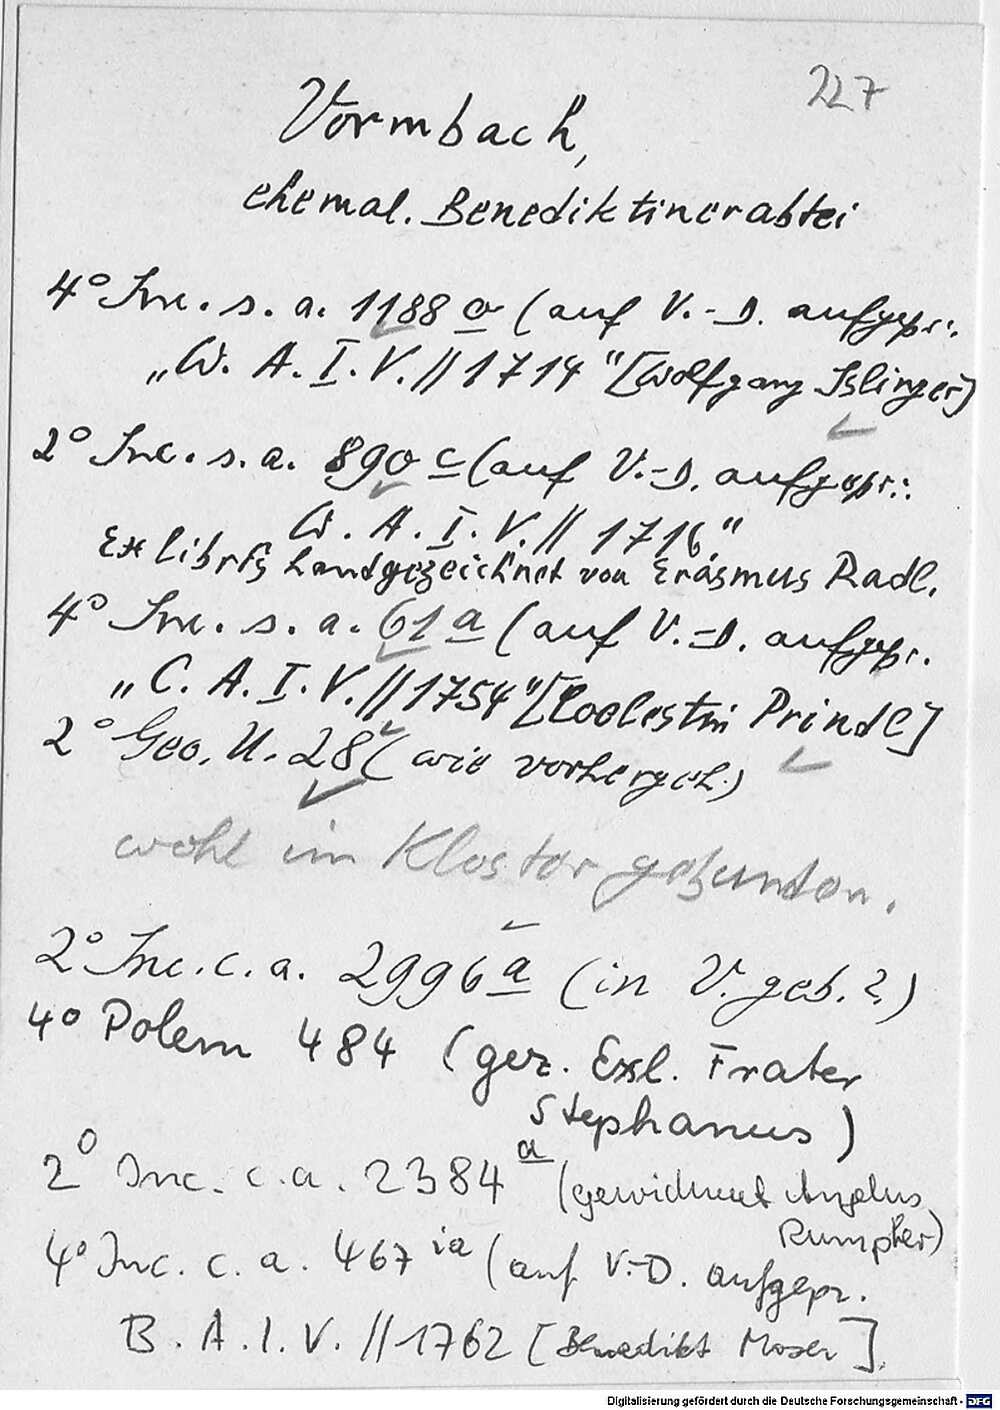 227
Vormbach,
ehemal. Benediktinerabtei
4° Inc. s. a. 1188 o (auf V.-D. aufgepr.:
„W. A. I. V. // 1714" [Wolfgang Islinger]
2° Inc. s. a. 890 c (auf V.-D. aufgepr.:
W. A. I. V. // 1716."
Exlibris handgezeichnet von Erasmus Radl.
4° Inc. s. a. 61 a (auf V.-D. aufgepr.
„C. A. I. V. // 1754" [Coelestin Prindl]
2° Geo. U. 28 (wie vorhergeh.)
wohl im Kloster gebunden.
2° Inc. c. a. 2996 a (in V. geb.?)
4° Polem 484 (gez. Exl. Frater
Stephanus)
2° Inc. c. a. 2384 a (gewidmet Angelus
Rumpler)
4° Inc. c. a. 467 ia (auf V.-D. aufgepr.
B. A. I. V. // 1762 [Benedikt Moser].
Digitalisierung gefördert durch die Deutsche Forschungsgemeinschaft - DFG